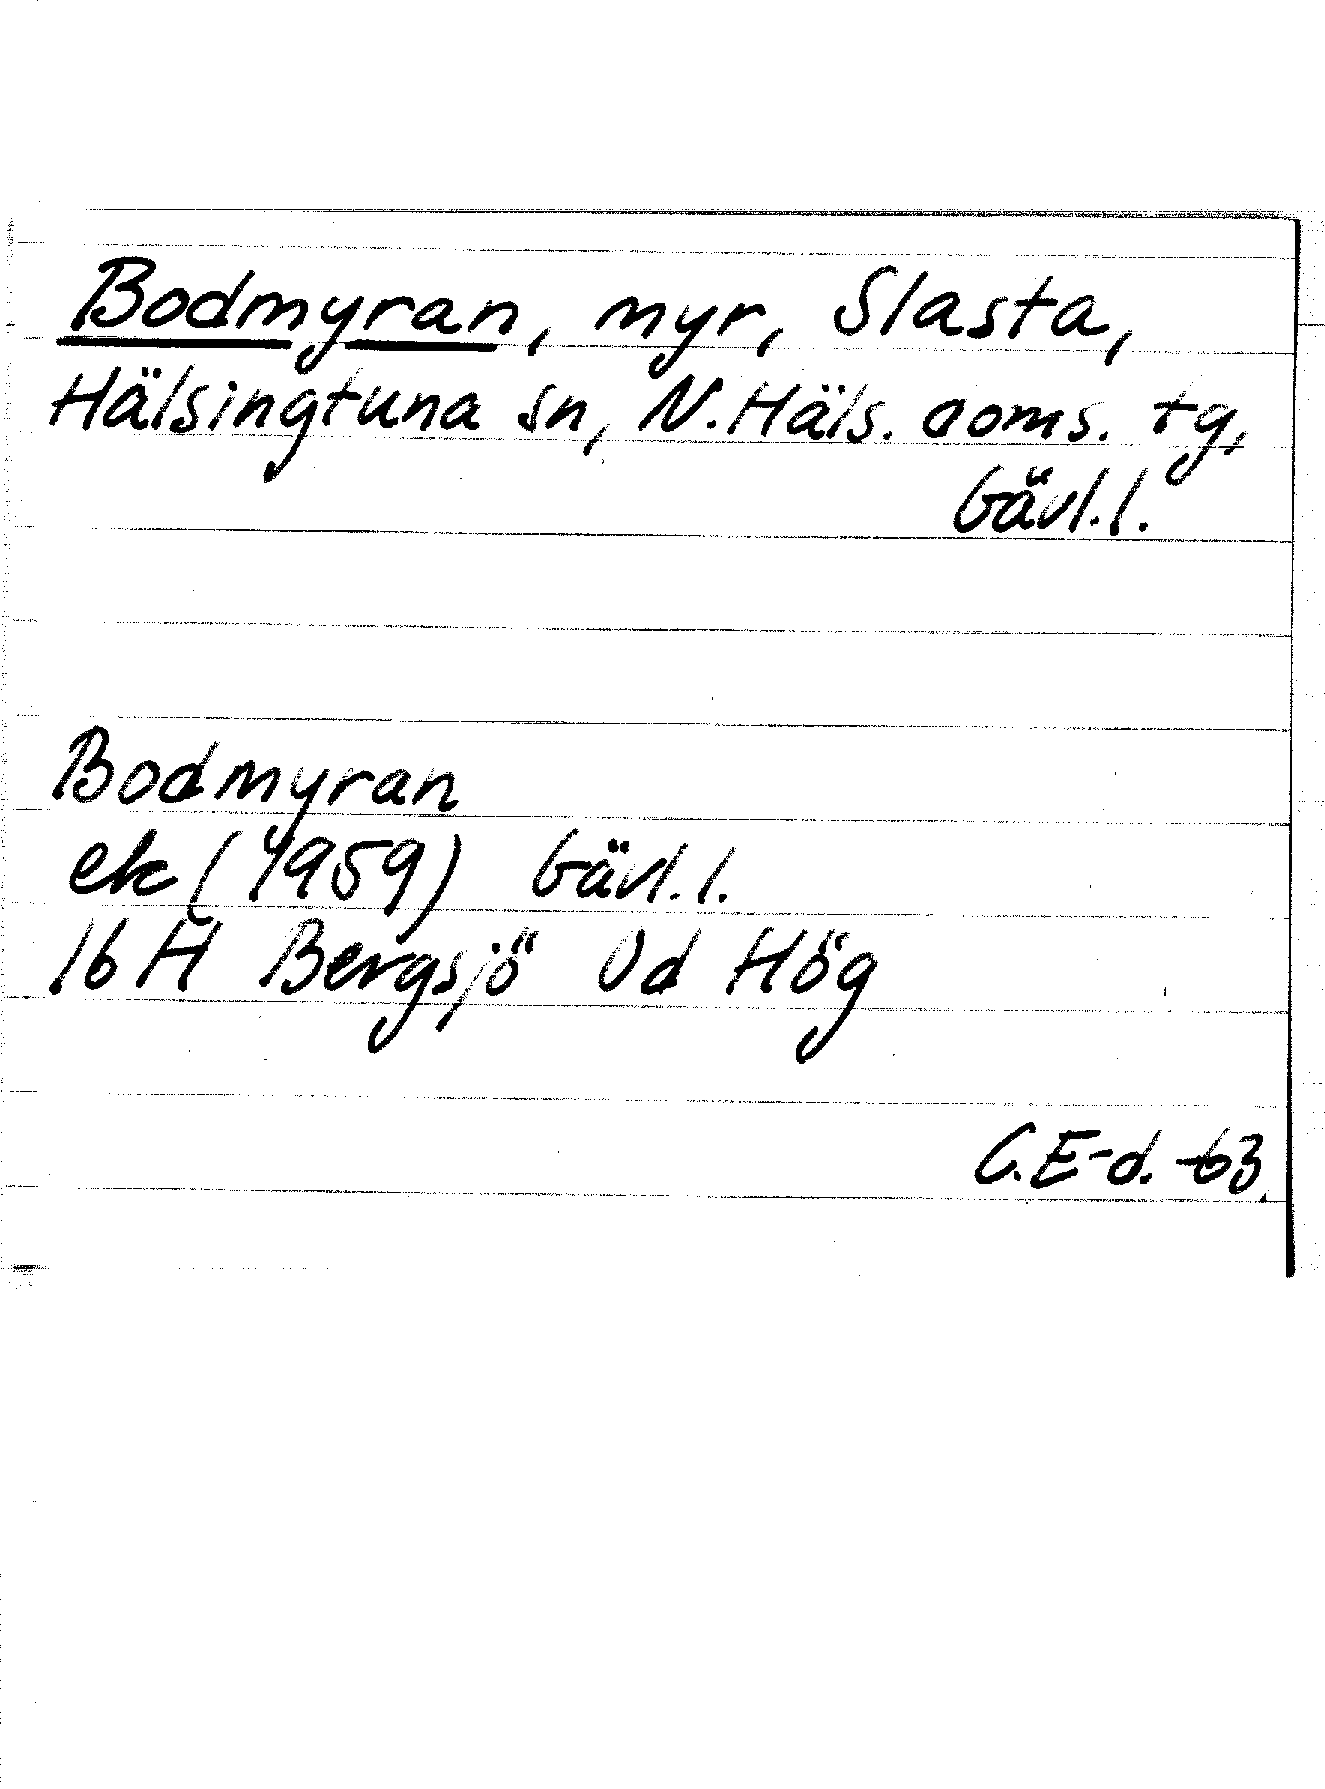 Bodmyran, myr, Slasta,
Hälsingtuna sn, N. Häls. doms. tg,
Gävl. l.
Bodmyran
ek (1959) Gävl. l.
16 H Bergsjö 0d Hög
C.E-d. -63.